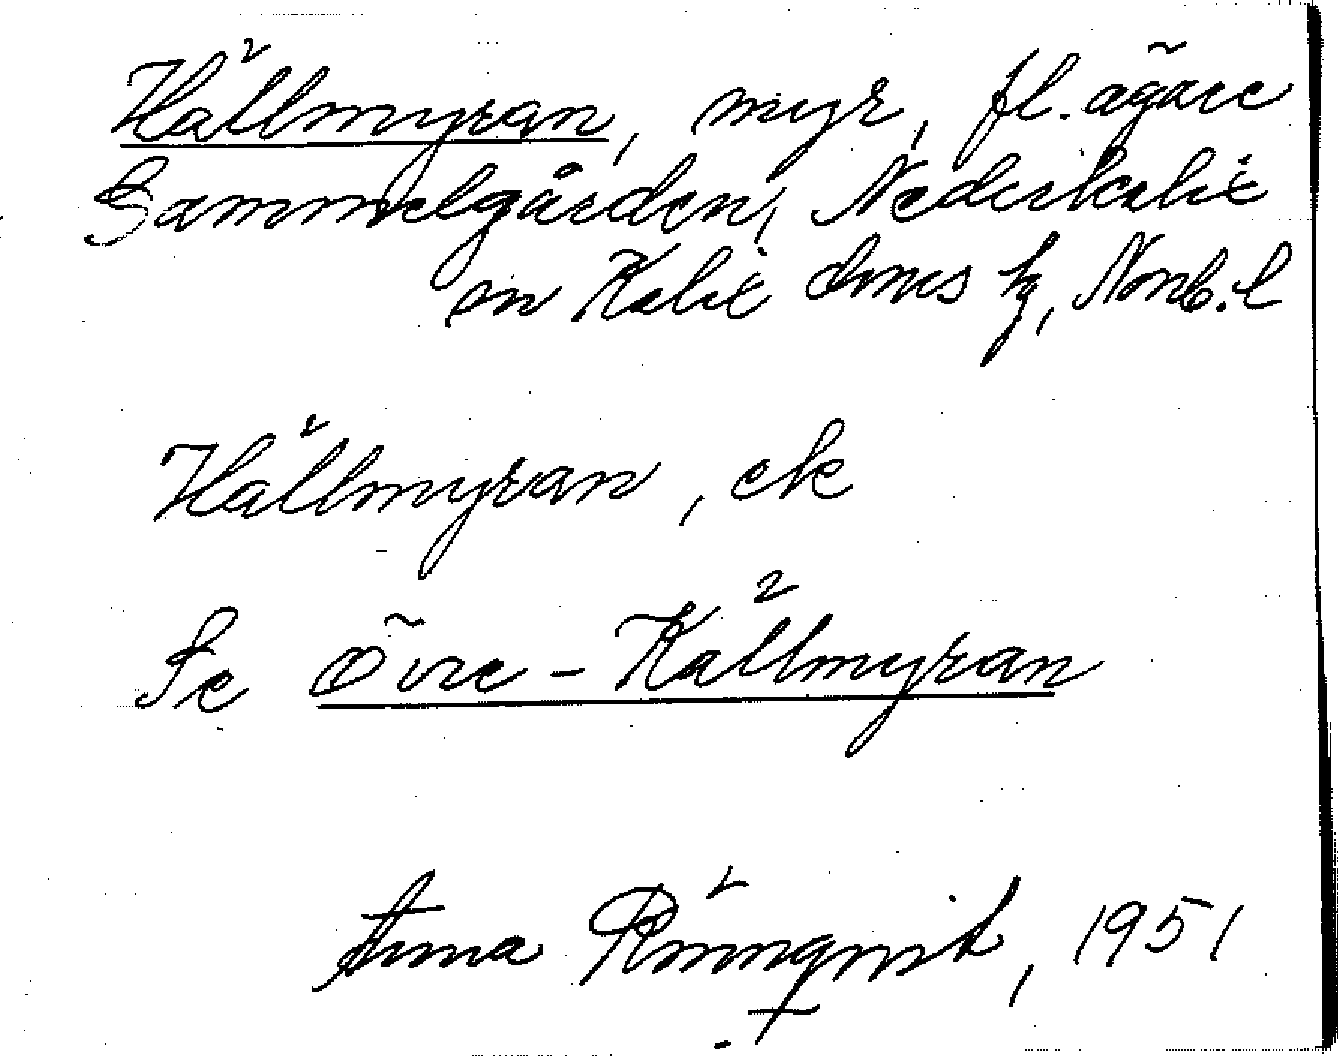 Källmyran, myr, fl. ägare
Gammelgården, Nederkalix
sn Kalix doms hg, Norrb. l
Källmyran, ek
Se Övre-Källmyran
Anna Rönnqvist, 1951